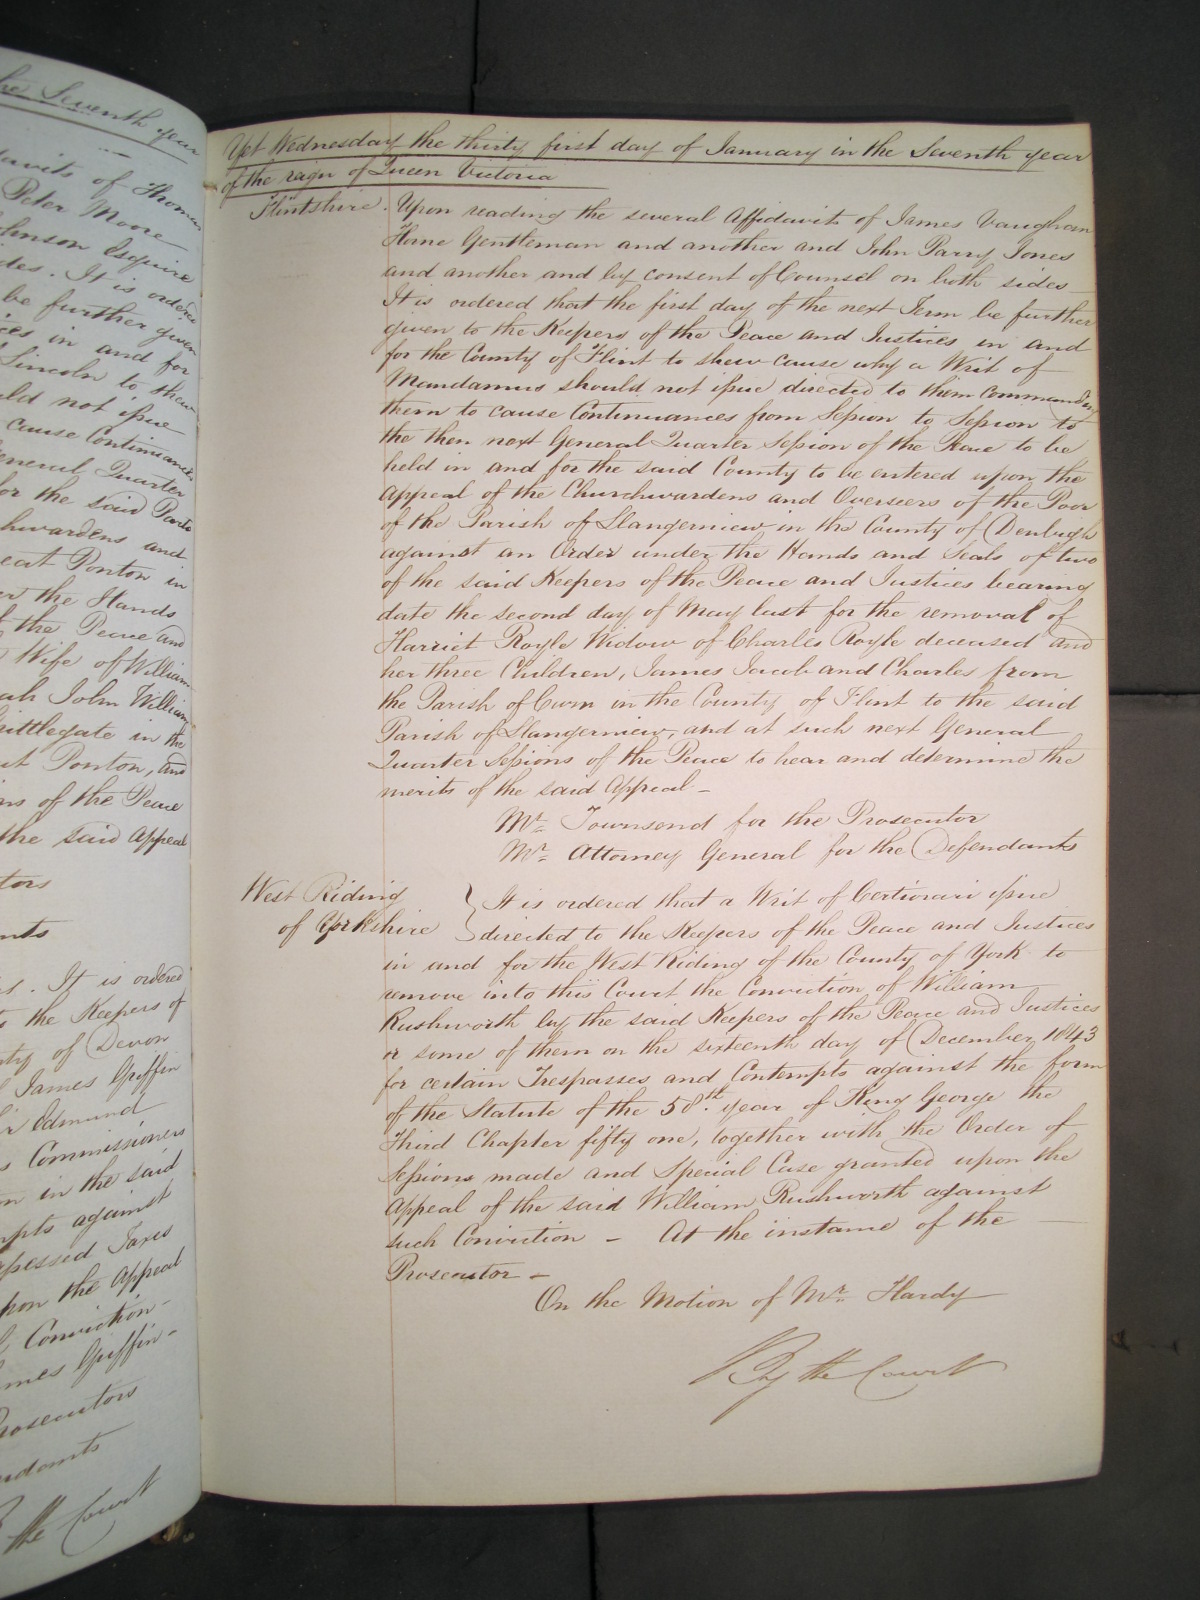 the Seventh year
davits of Thomas
Peter Moore
ohnson Esquire
ides. It is ordered
be further given
ices in and for
Lincoln to shew
uld not issue
cause Continuances
eneral Quarter
for the said Parts
chwardens and
eat Ponton in
er the Hands
f the Peace and
Wife of William
ah John William
uttlegate in the
at Ponton, and
ns of the Peace
the said Appeal
tors
nts
s. It is ordered
to the Keepers of
nty of Devon
James Griffin
Edmund
s Commissioners
on in the said
mpts against
assessed Taxes
pon the Appeal
Conviction-
ames Griffin-
rosecutors
endants
By the Court
Yet Wednesday the thirty first day of January in the Seventh year
of the reign of Queen Victoria
Flintshire. Upon reading the several Affidavits of James Vaughan
Horne Gentleman and another and John Parry Jones
and another and by consent of Counsel on both sides
It is ordered that the first day of the next Term be further
given to the Keepers of the Peace and Justices in and
for the County of Flint to shew cause why a Writ of
Mandamus should not issue directed to them commanding
them to cause Continuances from Session to Session to
the then next General Quarter Session of the Peace to be
held in and for the said County to be entered upon the
Appeal of the Churchwardens and Overseers of the Poor
of the Parish of Llangerniew in the County of Denbigh
against an Order under the Hands and Seals of two
of the said Keepers of the Peace and Justices bearing
date the second day of May last for the removal of
Harriet Royle Widow of Charles Royle deceased and
her three Children, James Jacob and Charles from
the Parish of Cwm in the County of Flint to the said
Parish of Llangerniew, and at such next General
Quarter Sessions of the Peace to hear and determine the
merits of the said Appeal -
Mr. Townsend for the Prosecutor
Mr. Attorney General for the Defendants
West Riding
of Yorkshire
It is ordered that a Writ of Certiorari issue
directed to the Keepers of the Peace and Justices
in and for the West Riding of the County of York to
remove into this Court the Conviction of William
Rushworth by the said Keepers of the Peace and Justices
or some of them on the sixteenth day of December 1843
for certain Trespasses and Contempts against the form
of the Statute of the 58th. year of King George the
Third Chapter fifty one, together with the Order of
Sessions made and Special Case granted upon the
Appeal of the said William Rushworth against
such Conviction - At the instance of the
Prosecutor -
On the Motion of Mr. Hardy
By the Court